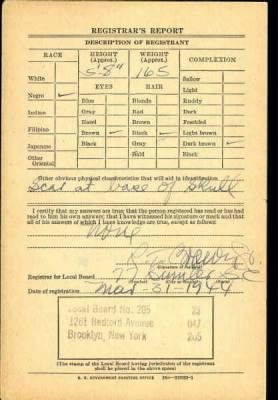 REGISTRAR'S REPORT
DESCRIPTION OF REGISTRANT
RACE HEIGHT (Approx.) WEIGHT (Approx.) COMPLEXION
5'8" 165
White Sallow
EYES HAIR Light
Negro ✓ Blue Blonde Ruddy
Indian Gray Red Dark
Hazel Brown Freckled
Filipino Brown ✓ Black ✓ Light brown
Japanese Black Gray Dark brown ✓
Other Oriental Bald Black
Other obvious physical characteristics that will aid in identification
Scar at base of skull
I certify that my answers are true; that the person registered has read or has had
read to him his own answers; that I have witnessed his signature or mark and that
all of his answers of which I have knowledge are true, except as follows:
None
Registrar for Local Board
Date of registration Mar-31-1944
Local Board No. 205
1261 Bedford Avenue
Brooklyn, New York
(The stamp of the Local Board having jurisdiction of the registrant
shall be placed in the above space)
U. S. GOVERNMENT PRINTING OFFICE